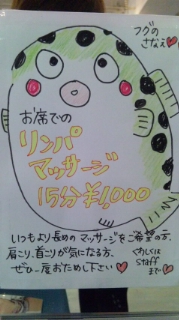 フグの
さなえ♥
お席での
リンパ
マッサージ
15分¥1,000
いつもより長めのマッサージをご希望の方、
肩こり、首こりが気になる方、
ぜひ一度おためし下さい♥
くわしくは
staff
まで♥